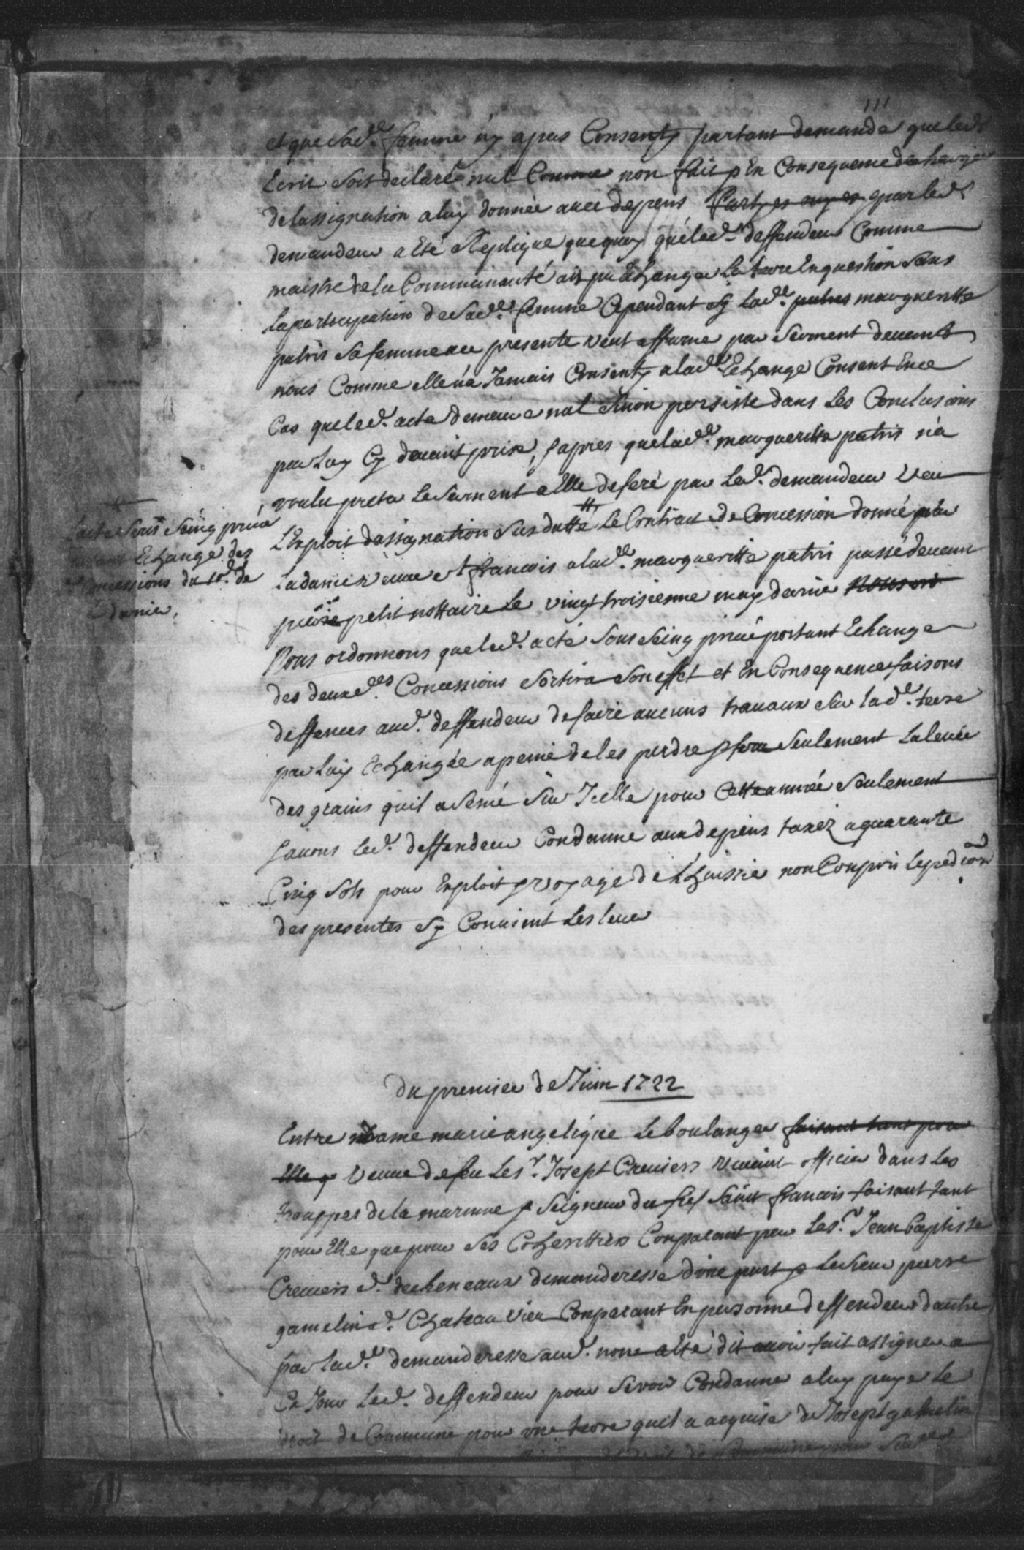 111
et que sad.e femme n'y a pas Consenty partant demande que led.
Ecrit soit declaré nul Comme non fait & En Consequence decharge
de lassignation a luy donnée avec depens Partyes ouyes & par led.
demandeur a Eté Repliqué que quoy que led. deffendeur Comme
maistre de la Communauté ait pu Echanger la terre En question sans
la participation de sad.e femme Cependant sy lad.e patris margueritte
patris sa femme acy presente veut affirmer par serment devant
nous Comme elle n'a Jamais Consenty a lad.e Echange Consent En ce
Cas que led. acte demeure nul sinon persiste dans les Conclusions
par luy Cy devant prise, & apres que lad.e marguerite patris n'a
voulu preter le serment a Elle deferé par led. demandeur Veu
L'Exploit dassignation susdatté, le Contract de Concession donné par la
La danie veuve et francois a lad.e margueritte patris passé devant
pierre petit nottaire le vingt troisieme may dernier Nous ord
Nous ordonnons que led. acte sous seing privé portant Echange
des deux d.es Concessions sortira son effet et En Consequence faisons
deffences aud. deffendeur de faire aucuns travaux sur lad.e terre
par luy Echangée a peine de les perdre & fera seulement la levée
des grains quil a semé sur Icelle pour Cette année seulement
& avons led. deffendeur Condamne aux depens taxez a quarante
Cinq sols pour Exploit & voyage de L'huissier non Compris Lexpedi.on
des presentes sy Convient les lever
Lacte sous seing privé
Echange des
Concessions du 10.e de
danie.
Du premier de Juin 1722
Entre Dame marie angelique Le boulanger faisant tant pour
Elle q Veuve de feu Le s.r Joseph Crevier vivant officier dans les
trouppes de la marinne & Seigneur du fief Saint francois faisant tant
pour Elle que pour ses Coheritiers Comparant par le s.r Jean Baptiste
Crevier s.r duchenaux demanderesse d'une part & Le sieur pierre
gamelin s.r Chateau vieu Comparant En personne deffendeur d'autre
par lad.e demanderesse aud. nom a Eté dit avoir fait assigner a
Ce Jour led. deffendeur pour se voir Condamne a luy payer le
droit de Commune pour une terre quil a acquise de Joseph gamelin